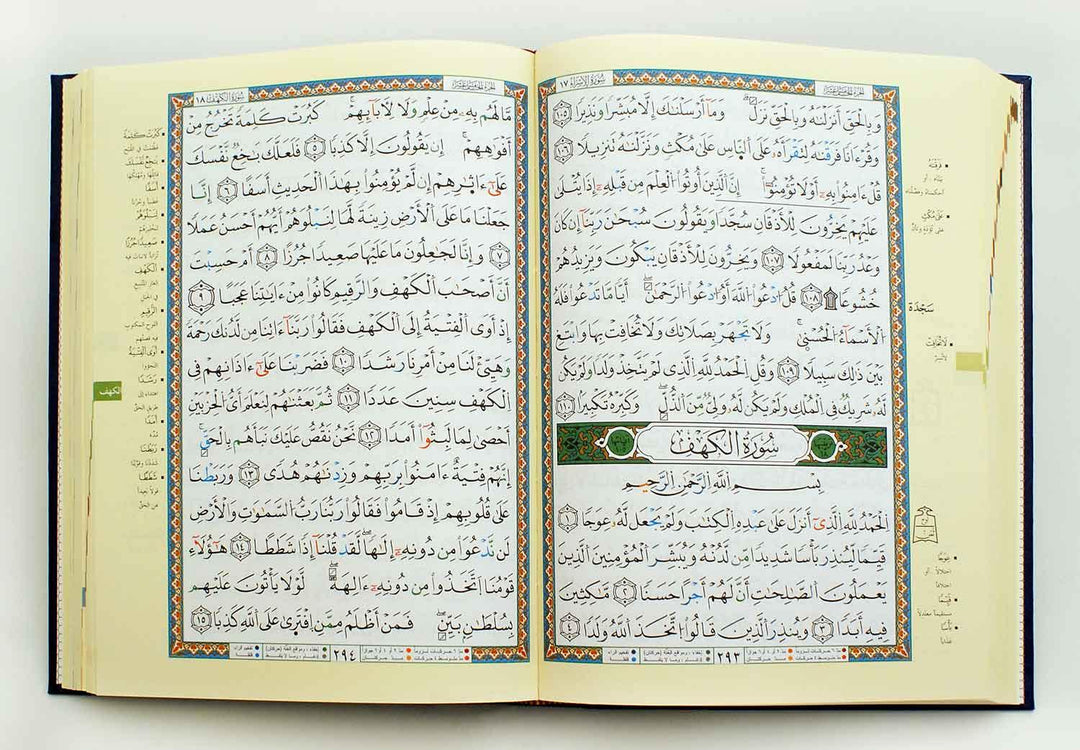 سُورَةُ الإِسْرَاءِ ١٧
الجُزْءُ الخَامِسَ عَشَرَ
وَبِالْحَقِّ أَنزَلْنَٰهُ وَبِالْحَقِّ نَزَلَ وَمَآ أَرْسَلْنَٰكَ إِلَّا مُبَشِّرًا وَنَذِيرًا ١٠٥
وَقُرْءَانًا فَرَقْنَٰهُ لِتَقْرَأَهُۥ عَلَى النَّاسِ عَلَىٰ مُكْثٍ وَنَزَّلْنَٰهُ تَنزِيلًا ١٠٦
قُلْ ءَامِنُوا بِهِۦٓ أَوْ لَا تُؤْمِنُوٓا إِنَّ الَّذِينَ أُوتُوا الْعِلْمَ مِن قَبْلِهِۦٓ إِذَا يُتْلَىٰ
عَلَيْهِمْ يَخِرُّونَ لِلْأَذْقَانِ سُجَّدًا وَيَقُولُونَ سُبْحَٰنَ رَبِّنَآ إِن كَانَ
وَعْدُ رَبِّنَا لَمَفْعُولًا ١٠٧ وَيَخِرُّونَ لِلْأَذْقَانِ يَبْكُونَ وَيَزِيدُهُمْ
خُشُوعًا ۩ ١٠٨ قُلِ ادْعُوا اللَّهَ أَوِ ادْعُوا الرَّحْمَٰنَ أَيًّا مَّا تَدْعُوا فَلَهُ
الْأَسْمَآءُ الْحُسْنَىٰ وَلَا تَجْهَرْ بِصَلَاتِكَ وَلَا تُخَافِتْ بِهَا وَابْتَغِ
بَيْنَ ذَٰلِكَ سَبِيلًا ١٠٩ وَقُلِ الْحَمْدُ لِلَّهِ الَّذِى لَمْ يَتَّخِذْ وَلَدًا وَلَمْ يَكُن
لَّهُۥ شَرِيكٌ فِى الْمُلْكِ وَلَمْ يَكُن لَّهُۥ وَلِىٌّ مِّنَ الذُّلِّ وَكَبِّرْهُ تَكْبِيرًا ١١٠
سُورَةُ الْكَهْفِ
بِسْمِ اللَّهِ الرَّحْمَٰنِ الرَّحِيمِ
الْحَمْدُ لِلَّهِ الَّذِىٓ أَنزَلَ عَلَىٰ عَبْدِهِ الْكِتَٰبَ وَلَمْ يَجْعَل لَّهُۥ عِوَجَا ١
قَيِّمًا لِّيُنذِرَ بَأْسًا شَدِيدًا مِّن لَّدُنْهُ وَيُبَشِّرَ الْمُؤْمِنِينَ الَّذِينَ
يَعْمَلُونَ الصَّٰلِحَٰتِ أَنَّ لَهُمْ أَجْرًا حَسَنًا ٢ مَّٰكِثِينَ
فِيهِ أَبَدًا ٣ وَيُنذِرَ الَّذِينَ قَالُوا اتَّخَذَ اللَّهُ وَلَدًا ٤
٢٩٣
فَرَقْنَٰهُ
عَلَىٰ مُكْثٍ
سَجْدَة
لَا تُخَافِتْ
عِوَجًا
قَيِّمًا
بَأْسًا
الجُزْءُ الخَامِسَ عَشَرَ
سُورَةُ الكَهْفِ ١٨
مَّا لَهُم بِهِۦ مِنْ عِلْمٍ وَلَا لِأٓبَآئِهِمْ كَبُرَتْ كَلِمَةً تَخْرُجُ مِنْ
أَفْوَٰهِهِمْ إِن يَقُولُونَ إِلَّا كَذِبًا ٥ فَلَعَلَّكَ بَٰخِعٌ نَّفْسَكَ
عَلَىٰٓ ءَاثَٰرِهِمْ إِن لَّمْ يُؤْمِنُوا بِهَٰذَا الْحَدِيثِ أَسَفًا ٦ إِنَّا
جَعَلْنَا مَا عَلَى الْأَرْضِ زِينَةً لَّهَا لِنَبْلُوَهُمْ أَيُّهُمْ أَحْسَنُ عَمَلًا
٧ وَإِنَّا لَجَٰعِلُونَ مَا عَلَيْهَا صَعِيدًا جُرُزًا ٨ أَمْ حَسِبْتَ
أَنَّ أَصْحَٰبَ الْكَهْفِ وَالرَّقِيمِ كَانُوا مِنْ ءَايَٰتِنَا عَجَبًا ٩
إِذْ أَوَى الْفِتْيَةُ إِلَى الْكَهْفِ فَقَالُوا رَبَّنَآ ءَاتِنَا مِن لَّدُنكَ رَحْمَةً
وَهَيِّئْ لَنَا مِنْ أَمْرِنَا رَشَدًا ١٠ فَضَرَبْنَا عَلَىٰٓ ءَاذَانِهِمْ فِى
الْكَهْفِ سِنِينَ عَدَدًا ١١ ثُمَّ بَعَثْنَٰهُمْ لِنَعْلَمَ أَىُّ الْحِزْبَيْنِ
أَحْصَىٰ لِمَا لَبِثُوٓا أَمَدًا ١٢ نَّحْنُ نَقُصُّ عَلَيْكَ نَبَأَهُم بِالْحَقِّ
إِنَّهُمْ فِتْيَةٌ ءَامَنُوا بِرَبِّهِمْ وَزِدْنَٰهُمْ هُدًى ١٣ وَرَبَطْنَا
عَلَىٰ قُلُوبِهِمْ إِذْ قَامُوا فَقَالُوا رَبُّنَا رَبُّ السَّمَٰوَٰتِ وَالْأَرْضِ
لَن نَّدْعُوَا مِن دُونِهِۦٓ إِلَٰهًا لَّقَدْ قُلْنَآ إِذًا شَطَطًا ١٤ هَٰٓؤُلَآءِ
قَوْمُنَا اتَّخَذُوا مِن دُونِهِۦٓ ءَالِهَةً لَّوْلَا يَأْتُونَ عَلَيْهِم
بِسُلْطَٰنٍ بَيِّنٍ فَمَنْ أَظْلَمُ مِمَّنِ افْتَرَىٰ عَلَى اللَّهِ كَذِبًا ١٥
٢٩٤
كَبُرَتْ كَلِمَةً
بَٰخِعٌ نَّفْسَكَ
أَسَفًا
لِنَبْلُوَهُمْ
صَعِيدًا جُرُزًا
الْكَهْفِ
الرَّقِيمِ
أَوَى الْفِتْيَةُ
رَشَدًا
أَمَدًا
رَبَطْنَا
شَطَطًا
الكهف